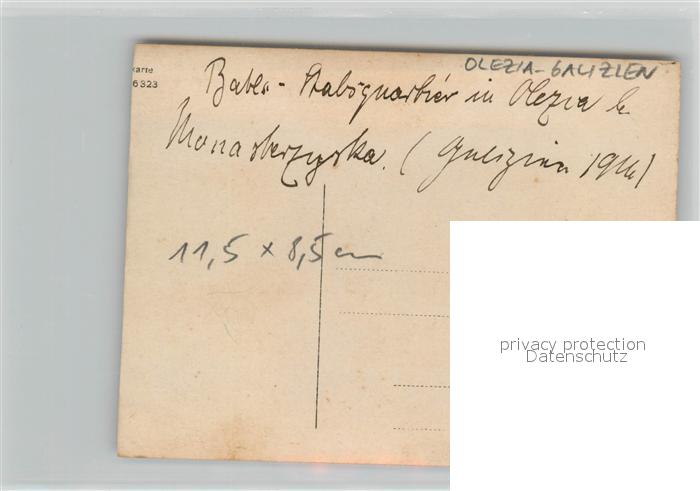 OLEZIA-GALIZIEN
karte
6323
Bates - Stabsquartier in Olezia b.
Monasterzyska. (Galizien 1916)
11,5 x 8,5 cm
privacy protection
Datenschutz